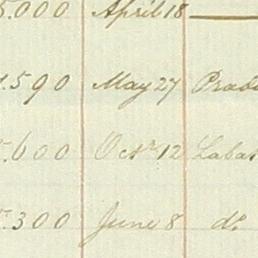 5.000 April 18
.590 May 27
.600 Octr. 12 Labat
.300 June 8 do.